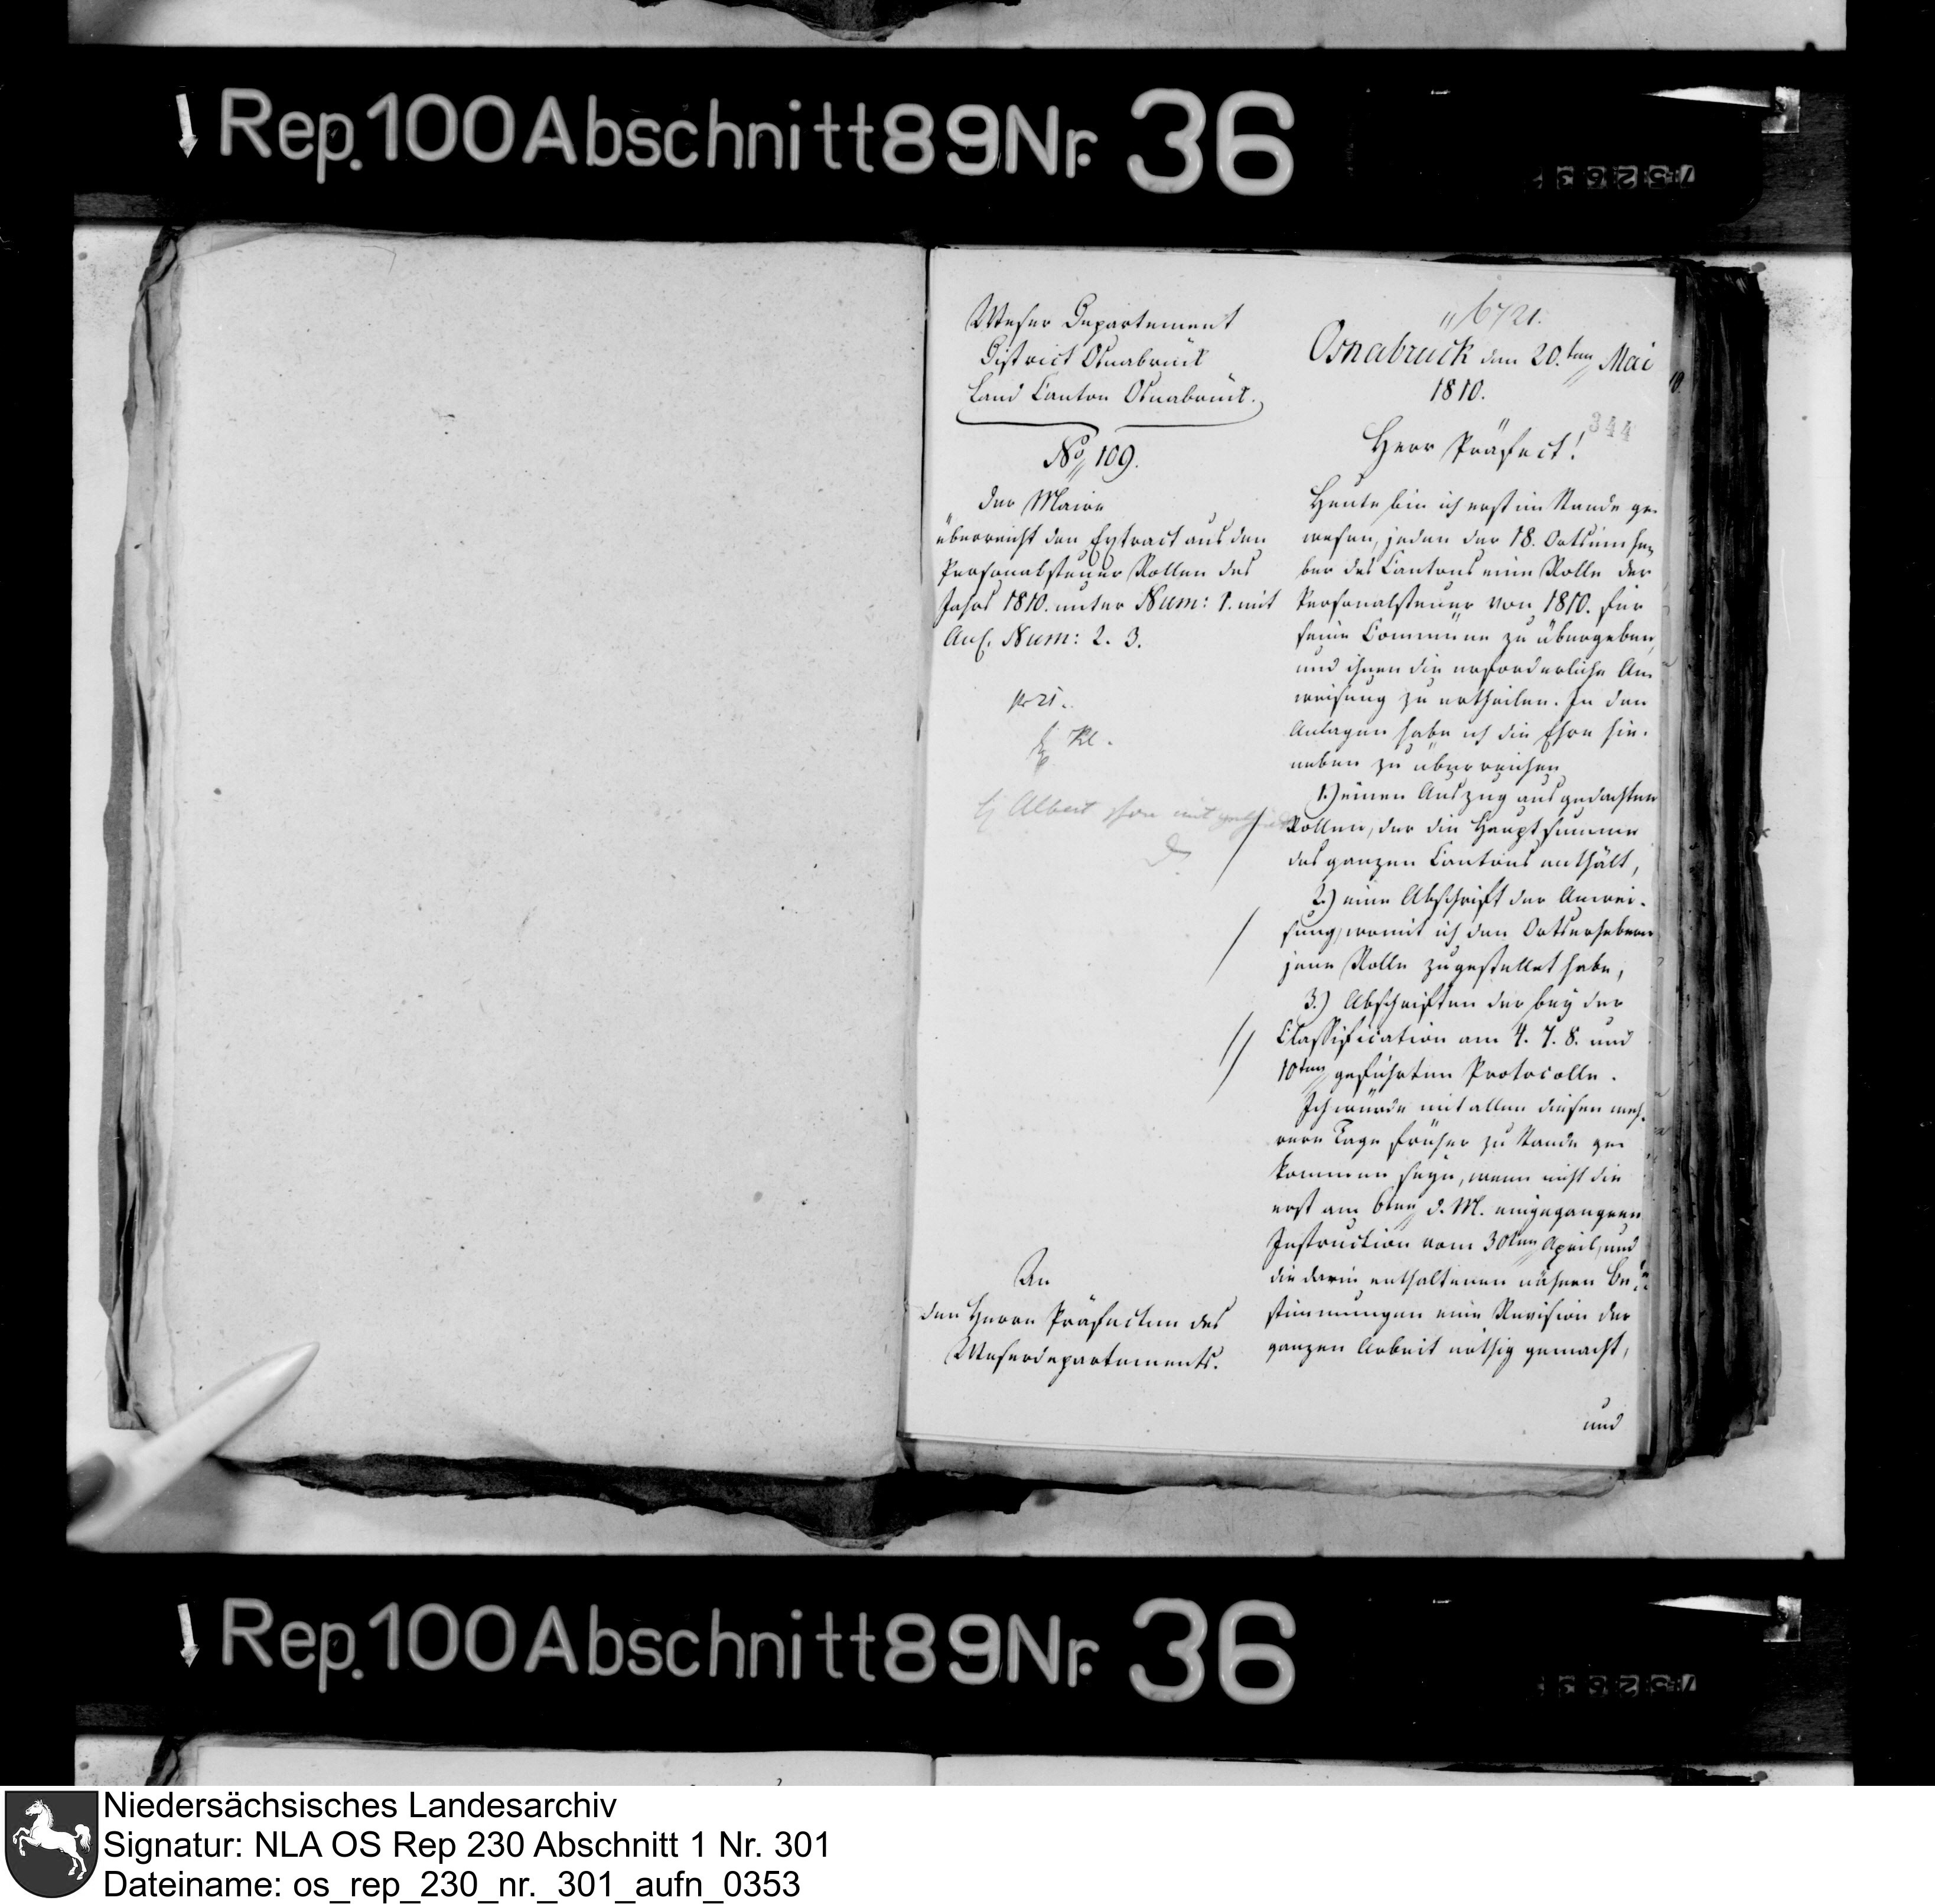 Rep. 100 Abschnitt 89 Nr. 36
Weser Departement
District Osnabrück
Land Canton Osnabrück.
No 109.
Der Maire
überreicht den Extract aus den
Personalsteuer Rollen des
Jahrs 1810. unter Num: 1. mit
Anl. Num: 2. 3.
An
den Herrn Präfecten des
Weserdepartements.
6721.
Osnabruck den 20.ten Mai
1810.
344
Herr Präfect!
Heute bin ich erst im Stande ge-
wesen, jeden der 18. Ortseinhe-
ber des Cantons eine Rolle der
Personalsteuer von 1810. für
seine Commüne zu übergeben,
und ihnen die erforderliche An-
weisung zu ertheilen. In den
Anlagen habe ich die Ehre hie-
neben zu überreichen
1.) einen Auszug aus gedachten
Rollen, der die Hauptsumme
des ganzen Cantons enthält,
2.) eine Abschrift der Anwei-
sung, womit ich den Ortserhebern
jene Rolle zugestellet habe,
3.) Abschriften der bey der
Classification am 4. 7. 8. und
10ten geführten Protocolle.
Ich würde mit allen diesen meh-
rere Tage früher zu Stande ge-
kommen seyn, wenn nicht die
erst am 6ten d. M. eingegangene
Instruction vom 30ten April, und
die darin enthaltenen nähern Be-
stimmungen eine Revision der
ganzen Arbeit nöthig gemacht,
und
Rep. 100 Abschnitt 89 Nr. 36
Niedersächsisches Landesarchiv
Signatur: NLA OS Rep 230 Abschnitt 1 Nr. 301
Dateiname: os_rep_230_nr._301_aufn_0353